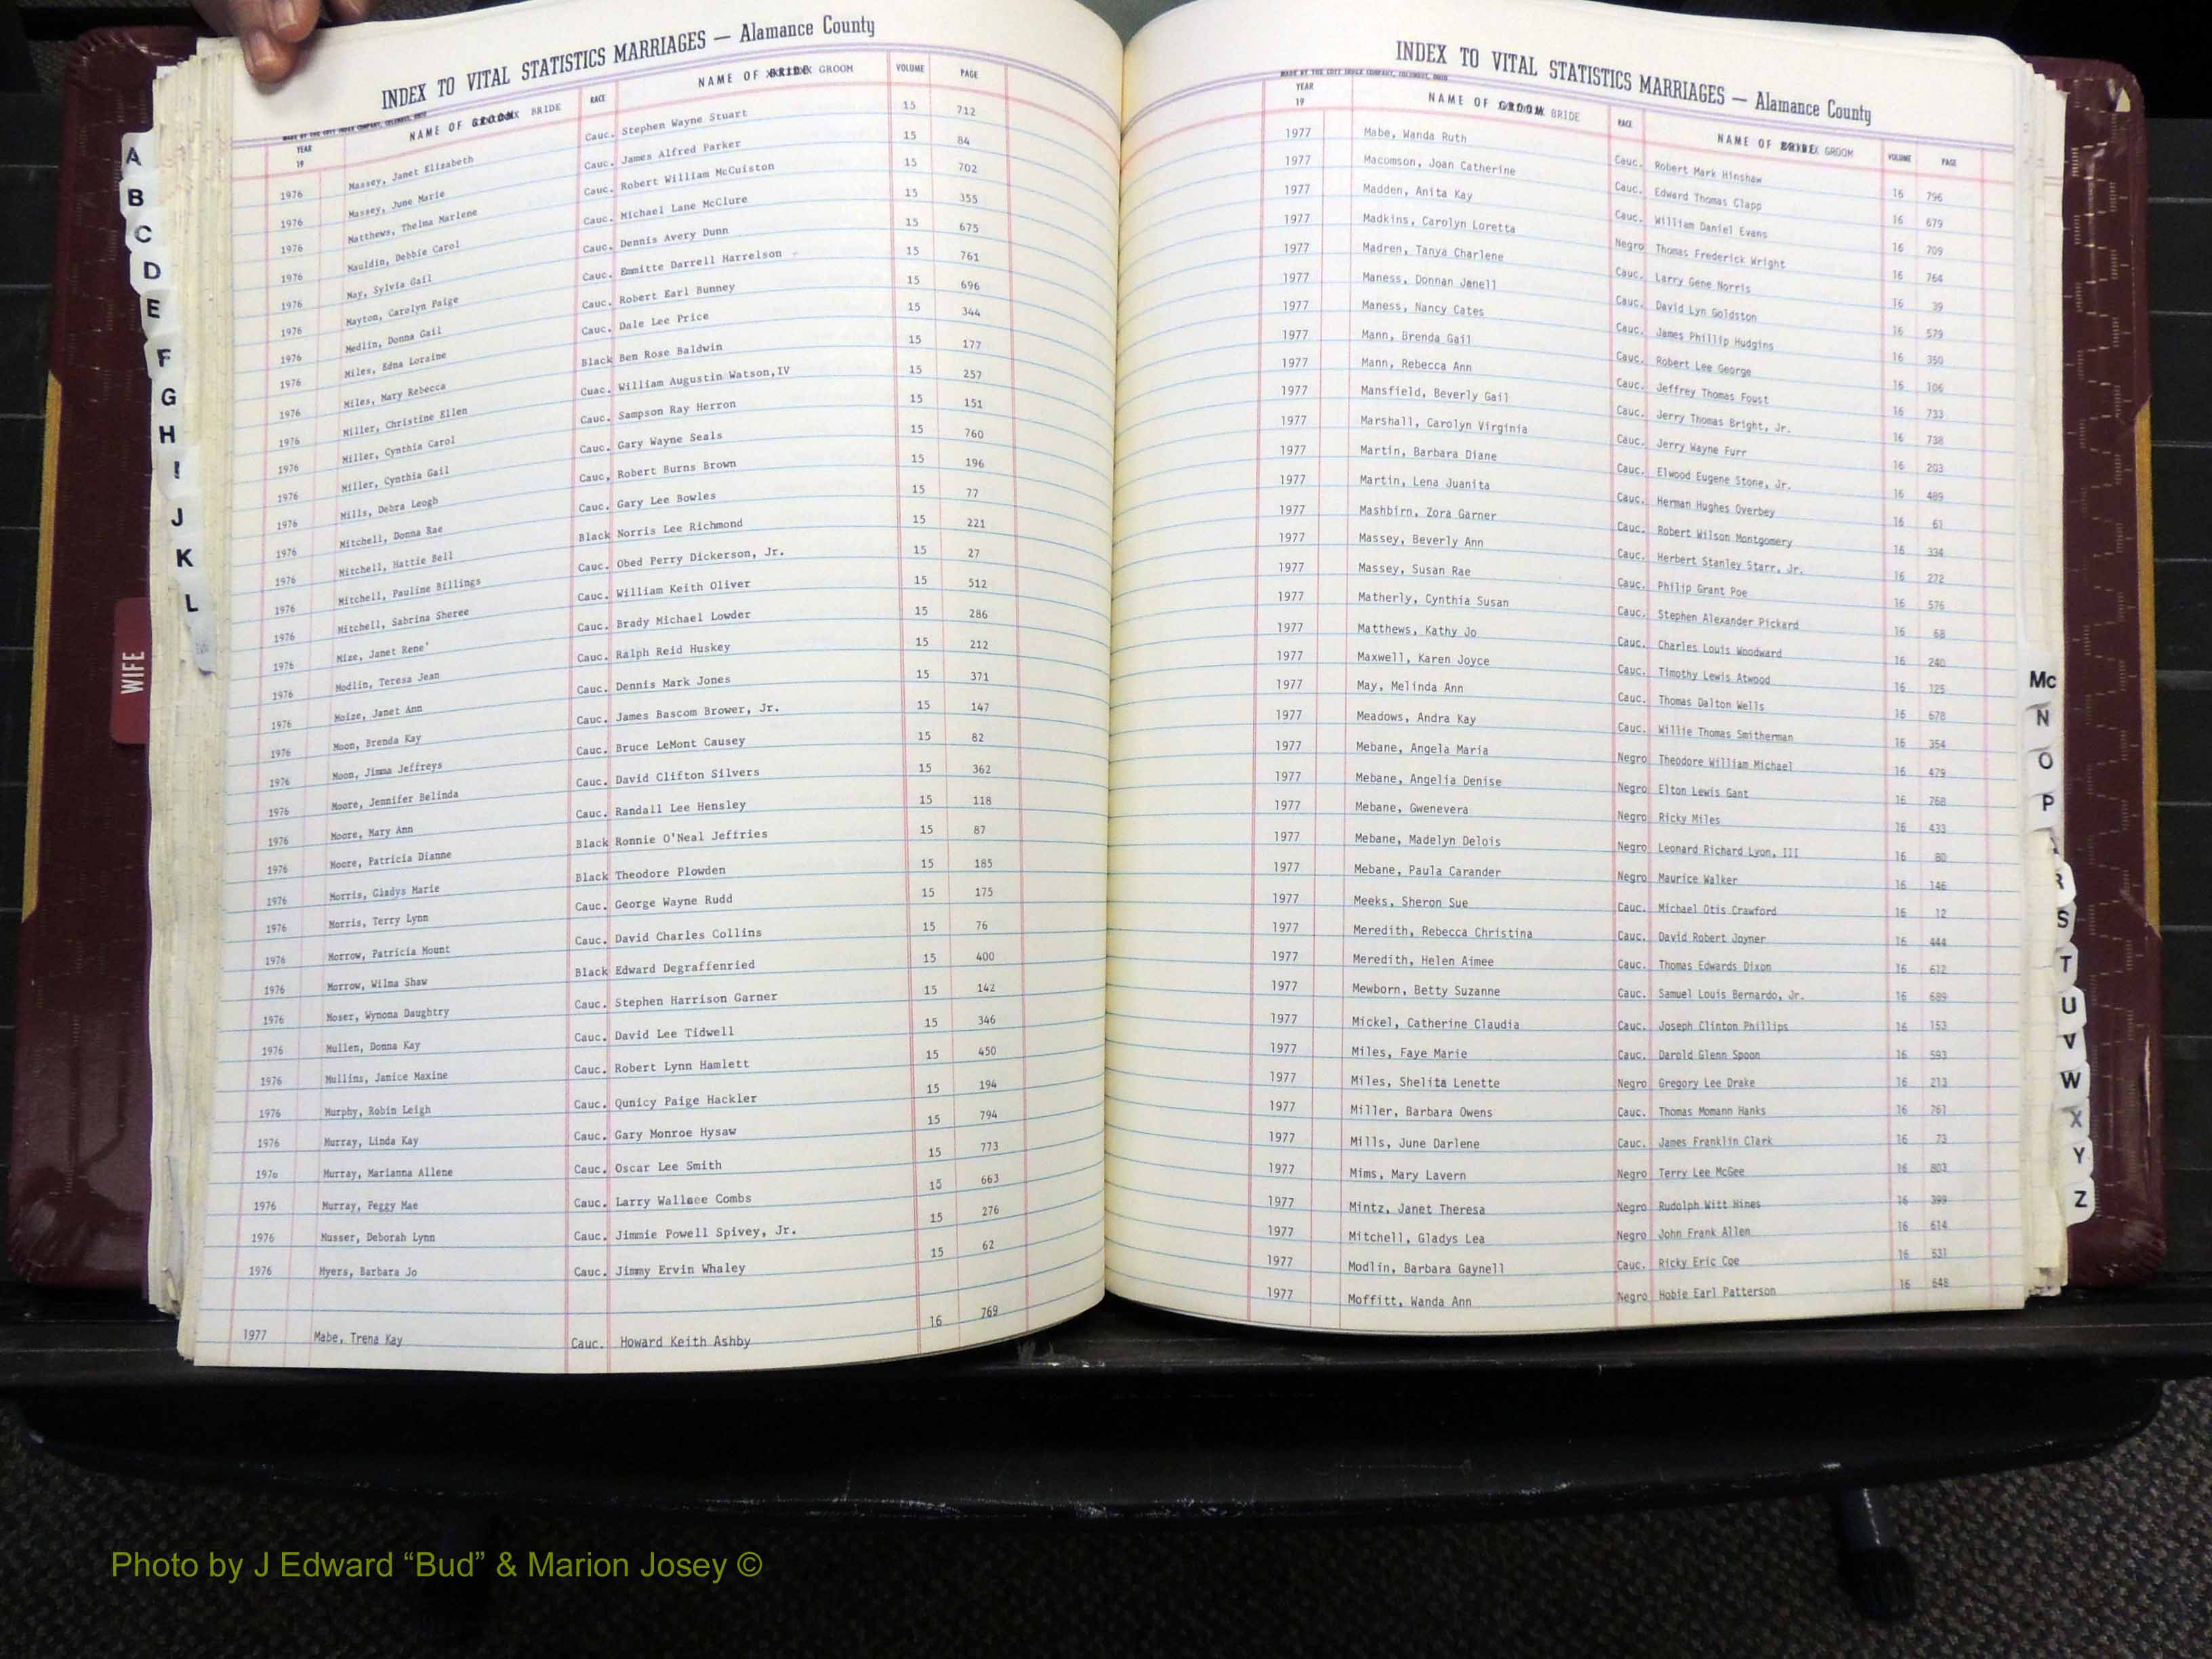 INDEX TO VITAL STATISTICS MARRIAGES — Alamance County
MADE BY THE COTT INDEX COMPANY, COLUMBUS, OHIO
YEAR 19 NAME OF GROOM BRIDE RACE NAME OF BRIDE GROOM VOLUME PAGE
1976 Massey, Janet Elizabeth Cauc. Stephen Wayne Stuart 15 712
1976 Massey, June Marie Cauc. James Alfred Parker 15 84
1976 Matthews, Thelma Marlene Cauc. Robert William McCuiston 15 702
1976 Mauldin, Debbie Carol Cauc. Michael Lane McClure 15 355
1976 May, Sylvia Gail Cauc. Dennis Avery Dunn 15 675
1976 Mayton, Carolyn Paige Cauc. Emmitte Darrell Harrelson 15 761
1976 Medlin, Donna Gail Cauc. Robert Earl Bunney 15 696
1976 Miles, Edna Loraine Cauc. Dale Lee Price 15 344
1976 Miles, Mary Rebecca Black Ben Rose Baldwin 15 177
1976 Miller, Christine Ellen Cuac. William Augustin Watson,IV 15 257
1976 Miller, Cynthia Carol Cauc. Sampson Ray Herron 15 151
1976 Miller, Cynthia Gail Cauc. Gary Wayne Seals 15 760
1976 Mills, Debra Leogh Cauc, Robert Burns Brown 15 196
1976 Mitchell, Donna Rae Cauc. Gary Lee Bowles 15 77
1976 Mitchell, Hattie Bell Black Norris Lee Richmond 15 221
1976 Mitchell, Pauline Billings Cauc. Obed Perry Dickerson, Jr. 15 27
1976 Mitchell, Sabrina Sheree Cauc. William Keith Oliver 15 512
1976 Mize, Janet Rene' Cauc. Brady Michael Lowder 15 286
1976 Modlin, Teresa Jean Cauc. Ralph Reid Huskey 15 212
1976 Moize, Janet Ann Cauc. Dennis Mark Jones 15 371
1976 Moon, Brenda Kay Cauc. James Bascom Brower, Jr. 15 147
1976 Moon, Jimma Jeffreys Cauc. Bruce LeMont Causey 15 82
1976 Moore, Jennifer Belinda Cauc. David Clifton Silvers 15 362
1976 Moore, Mary Ann Cauc. Randall Lee Hensley 15 118
1976 Moore, Patricia Dianne Black Ronnie O'Neal Jeffries 15 87
1976 Morris, Gladys Marie Black Theodore Plowden 15 185
1976 Morris, Terry Lynn Cauc. George Wayne Rudd 15 175
1976 Morrow, Patricia Mount Cauc. David Charles Collins 15 76
1976 Morrow, Wilma Shaw Black Edward Degraffenried 15 400
1976 Moser, Wynona Daughtry Cauc. Stephen Harrison Garner 15 142
1976 Mullen, Donna Kay Cauc. David Lee Tidwell 15 346
1976 Mullins, Janice Maxine Cauc. Robert Lynn Hamlett 15 450
1976 Murphy, Robin Leigh Cauc. Qunicy Paige Hackler 15 194
1976 Murray, Linda Kay Cauc. Gary Monroe Hysaw 15 794
1976 Murray, Marianna Allene Cauc. Oscar Lee Smith 15 773
1976 Murray, Peggy Mae Cauc. Larry Wallace Combs 15 663
1976 Musser, Deborah Lynn Cauc. Jimmie Powell Spivey, Jr. 15 276
1976 Myers, Barbara Jo Cauc. Jimmy Ervin Whaley 15 62
1977 Mabe, Trena Kay Cauc. Howard Keith Ashby 16 769
A
B
C
D
E
F
G
H
I
J
K
L
WIFE
INDEX TO VITAL STATISTICS MARRIAGES — Alamance County
MADE BY THE COTT INDEX COMPANY, COLUMBUS, OHIO
YEAR 19 NAME OF GROOM BRIDE RACE NAME OF BRIDE GROOM VOLUME PAGE
1977 Mabe, Wanda Ruth Cauc. Robert Mark Hinshaw 16 796
1977 Macomson, Joan Catherine Cauc. Edward Thomas Clapp 16 679
1977 Madden, Anita Kay Cauc. William Daniel Evans 16 709
1977 Madkins, Carolyn Loretta Negro Thomas Frederick Wright 16 764
1977 Madren, Tanya Charlene Cauc. Larry Gene Norris 16 39
1977 Maness, Donnan Janell Cauc. David Lyn Goldston 16 579
1977 Maness, Nancy Cates Cauc. James Phillip Hudgins 16 350
1977 Mann, Brenda Gail Cauc. Robert Lee George 16 106
1977 Mann, Rebecca Ann Cauc. Jeffrey Thomas Foust 16 733
1977 Mansfield, Beverly Gail Cauc. Jerry Thomas Bright, Jr. 16 738
1977 Marshall, Carolyn Virginia Cauc. Jerry Wayne Furr 16 203
1977 Martin, Barbara Diane Cauc. Elwood Eugene Stone, Jr. 16 489
1977 Martin, Lena Juanita Cauc. Herman Hughes Overbey 16 61
1977 Mashbirn, Zora Garner Cauc. Robert Wilson Montgomery 16 334
1977 Massey, Beverly Ann Cauc. Herbert Stanley Starr, Jr. 16 272
1977 Massey, Susan Rae Cauc. Philip Grant Poe 16 576
1977 Matherly, Cynthia Susan Cauc. Stephen Alexander Pickard 16 68
1977 Matthews, Kathy Jo Cauc. Charles Louis Woodward 16 240
1977 Maxwell, Karen Joyce Cauc. Timothy Lewis Atwood 16 125
1977 May, Melinda Ann Cauc. Thomas Dalton Wells 16 678
1977 Meadows, Andra Kay Cauc. Willie Thomas Smitherman 16 354
1977 Mebane, Angela Maria Negro Theodore William Michael 16 479
1977 Mebane, Angelia Denise Negro Elton Lewis Gant 16 768
1977 Mebane, Gwenevera Negro Ricky Miles 16 433
1977 Mebane, Madelyn Delois Negro Leonard Richard Lyon, III 16 80
1977 Mebane, Paula Carander Negro Maurice Walker 16 146
1977 Meeks, Sheron Sue Cauc. Michael Otis Crawford 16 12
1977 Meredith, Rebecca Christina Cauc. David Robert Joyner 16 444
1977 Meredith, Helen Aimee Cauc. Thomas Edwards Dixon 16 612
1977 Mewborn, Betty Suzanne Cauc. Samuel Louis Bernardo, Jr. 16 689
1977 Mickel, Catherine Claudia Cauc. Joseph Clinton Phillips 16 153
1977 Miles, Faye Marie Cauc. Darold Glenn Spoon 16 593
1977 Miles, Shelita Lenette Negro Gregory Lee Drake 16 213
1977 Miller, Barbara Owens Cauc. Thomas Momann Hanks 16 761
1977 Mills, June Darlene Cauc. James Franklin Clark 16 73
1977 Mims, Mary Lavern Negro Terry Lee McGee 16 803
1977 Mintz, Janet Theresa Negro Rudolph Witt Hines 16 399
1977 Mitchell, Gladys Lea Negro John Frank Allen 16 614
1977 Modlin, Barbara Gaynell Cauc. Ricky Eric Coe 16 531
1977 Moffitt, Wanda Ann Negro Hobie Earl Patterson 16 648
Mc
N
O
P
R
S
T
U
V
W
X
Y
Z
Photo by J Edward “Bud” & Marion Josey ©